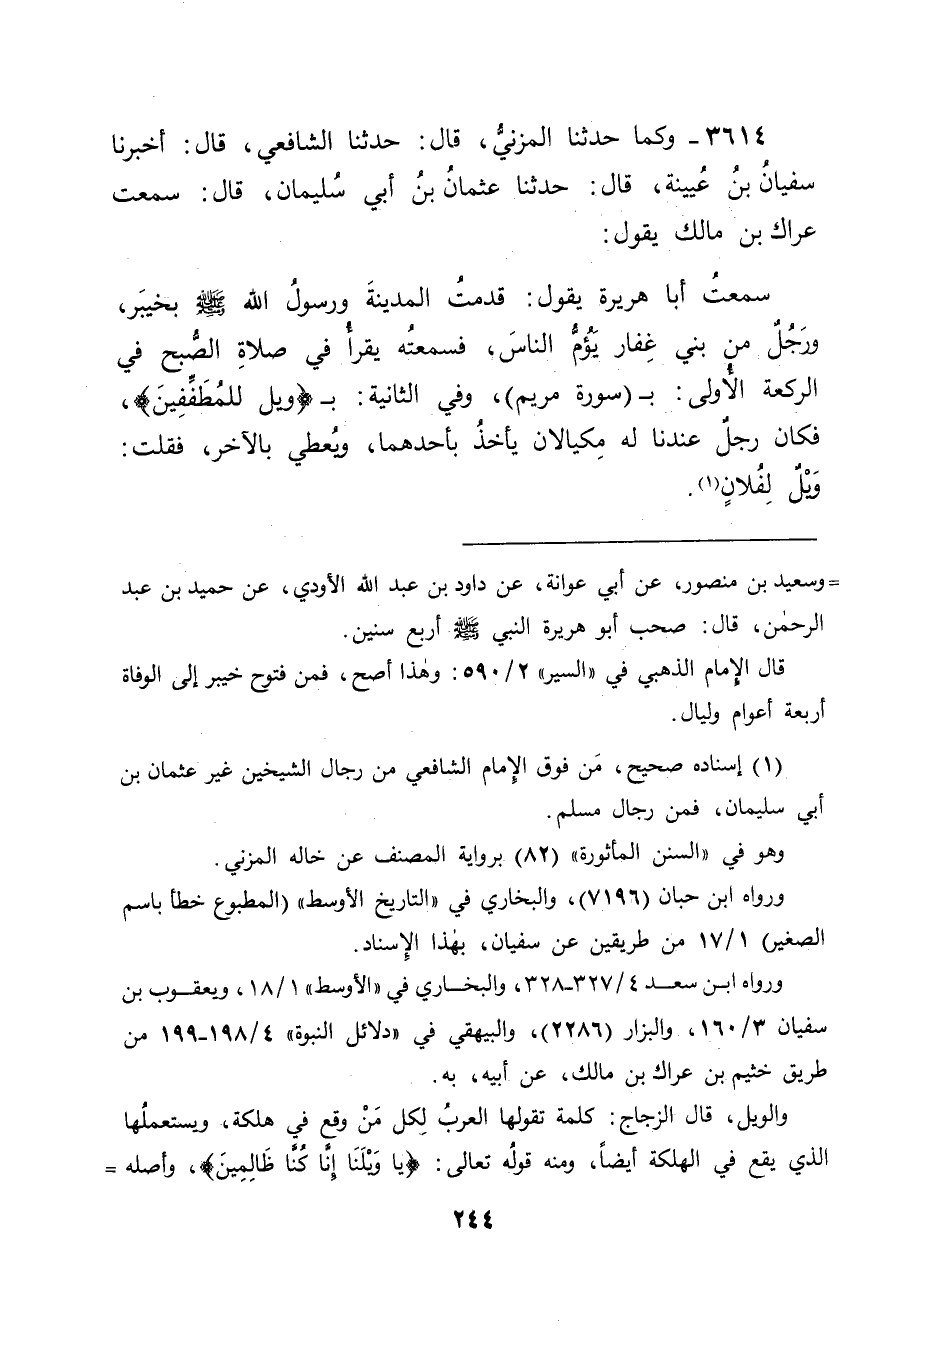 ٣٦١٤ ـ وكما حدثنا المزنيُّ، قال: حدثنا الشافعي، قال: أخبرنا
سفيانُ بنُ عُيينة، قال: حدثنا عثمانُ بنُ أبي سُليمان، قال: سمعت
عراك بن مالك يقول:
سمعتُ أبا هريرة يقول: قدمتُ المدينةَ ورسولُ الله ﷺ بخيبَر،
ورَجُلٌ من بني غِفار يَؤُمُّ الناسَ، فسمعتُه يقرأُ في صلاةِ الصُّبح في
الركعة الأُولى: بـ (سورة مريم)، وفي الثانية: بـ ﴿ويل للمُطَفِّفِينَ﴾،
فكان رجلٌ عندنا له مِكيالان يأخذُ بأحدهما، ويُعطي بالآخر، فقلت:
وَيْلٌ لِفُلانٍ(١).
=وسعيد بن منصور، عن أبي عوانة، عن داود بن عبد الله الأودي، عن حميد بن عبد
الرحمٰن، قال: صحب أبو هريرة النبي ﷺ أربع سنين.
قال الإمام الذهبي في «السير» ٥٩٠/٢: وهٰذا أصح، فمن فتوح خيبر إلى الوفاة
أربعة أعوام وليال.
(١) إسناده صحيح، مَن فوق الإمام الشافعي من رجال الشيخين غير عثمان بن
أبي سليمان، فمن رجال مسلم.
وهو في «السنن المأثورة» (٨٢) برواية المصنف عن خاله المزني.
ورواه ابن حبان (٧١٩٦)، والبخاري في «التاريخ الأوسط» (المطبوع خطأ باسم
الصغير) ١٧/١ من طريقين عن سفيان، بهٰذا الإسناد.
ورواه ابن سعد ٣٢٧/٤-٣٢٨، والبخاري في «الأوسط» ١٨/١، ويعقوب بن
سفيان ١٦٠/٣، والبزار (٢٢٨٦)، والبيهقي في «دلائل النبوة» ١٩٨/٤-١٩٩ من
طريق خثيم بن عراك بن مالك، عن أبيه، به.
والويل، قال الزجاج: كلمة تقولها العربُ لِكل مَنْ وقع في هلكة، ويستعملُها
الذي يقع في الهلكة أيضاً، ومنه قولُه تعالى: ﴿يا وَيْلَنَا إِنَّا كُنَّا ظَالِمِينَ﴾، وأصله =
٢٤٤